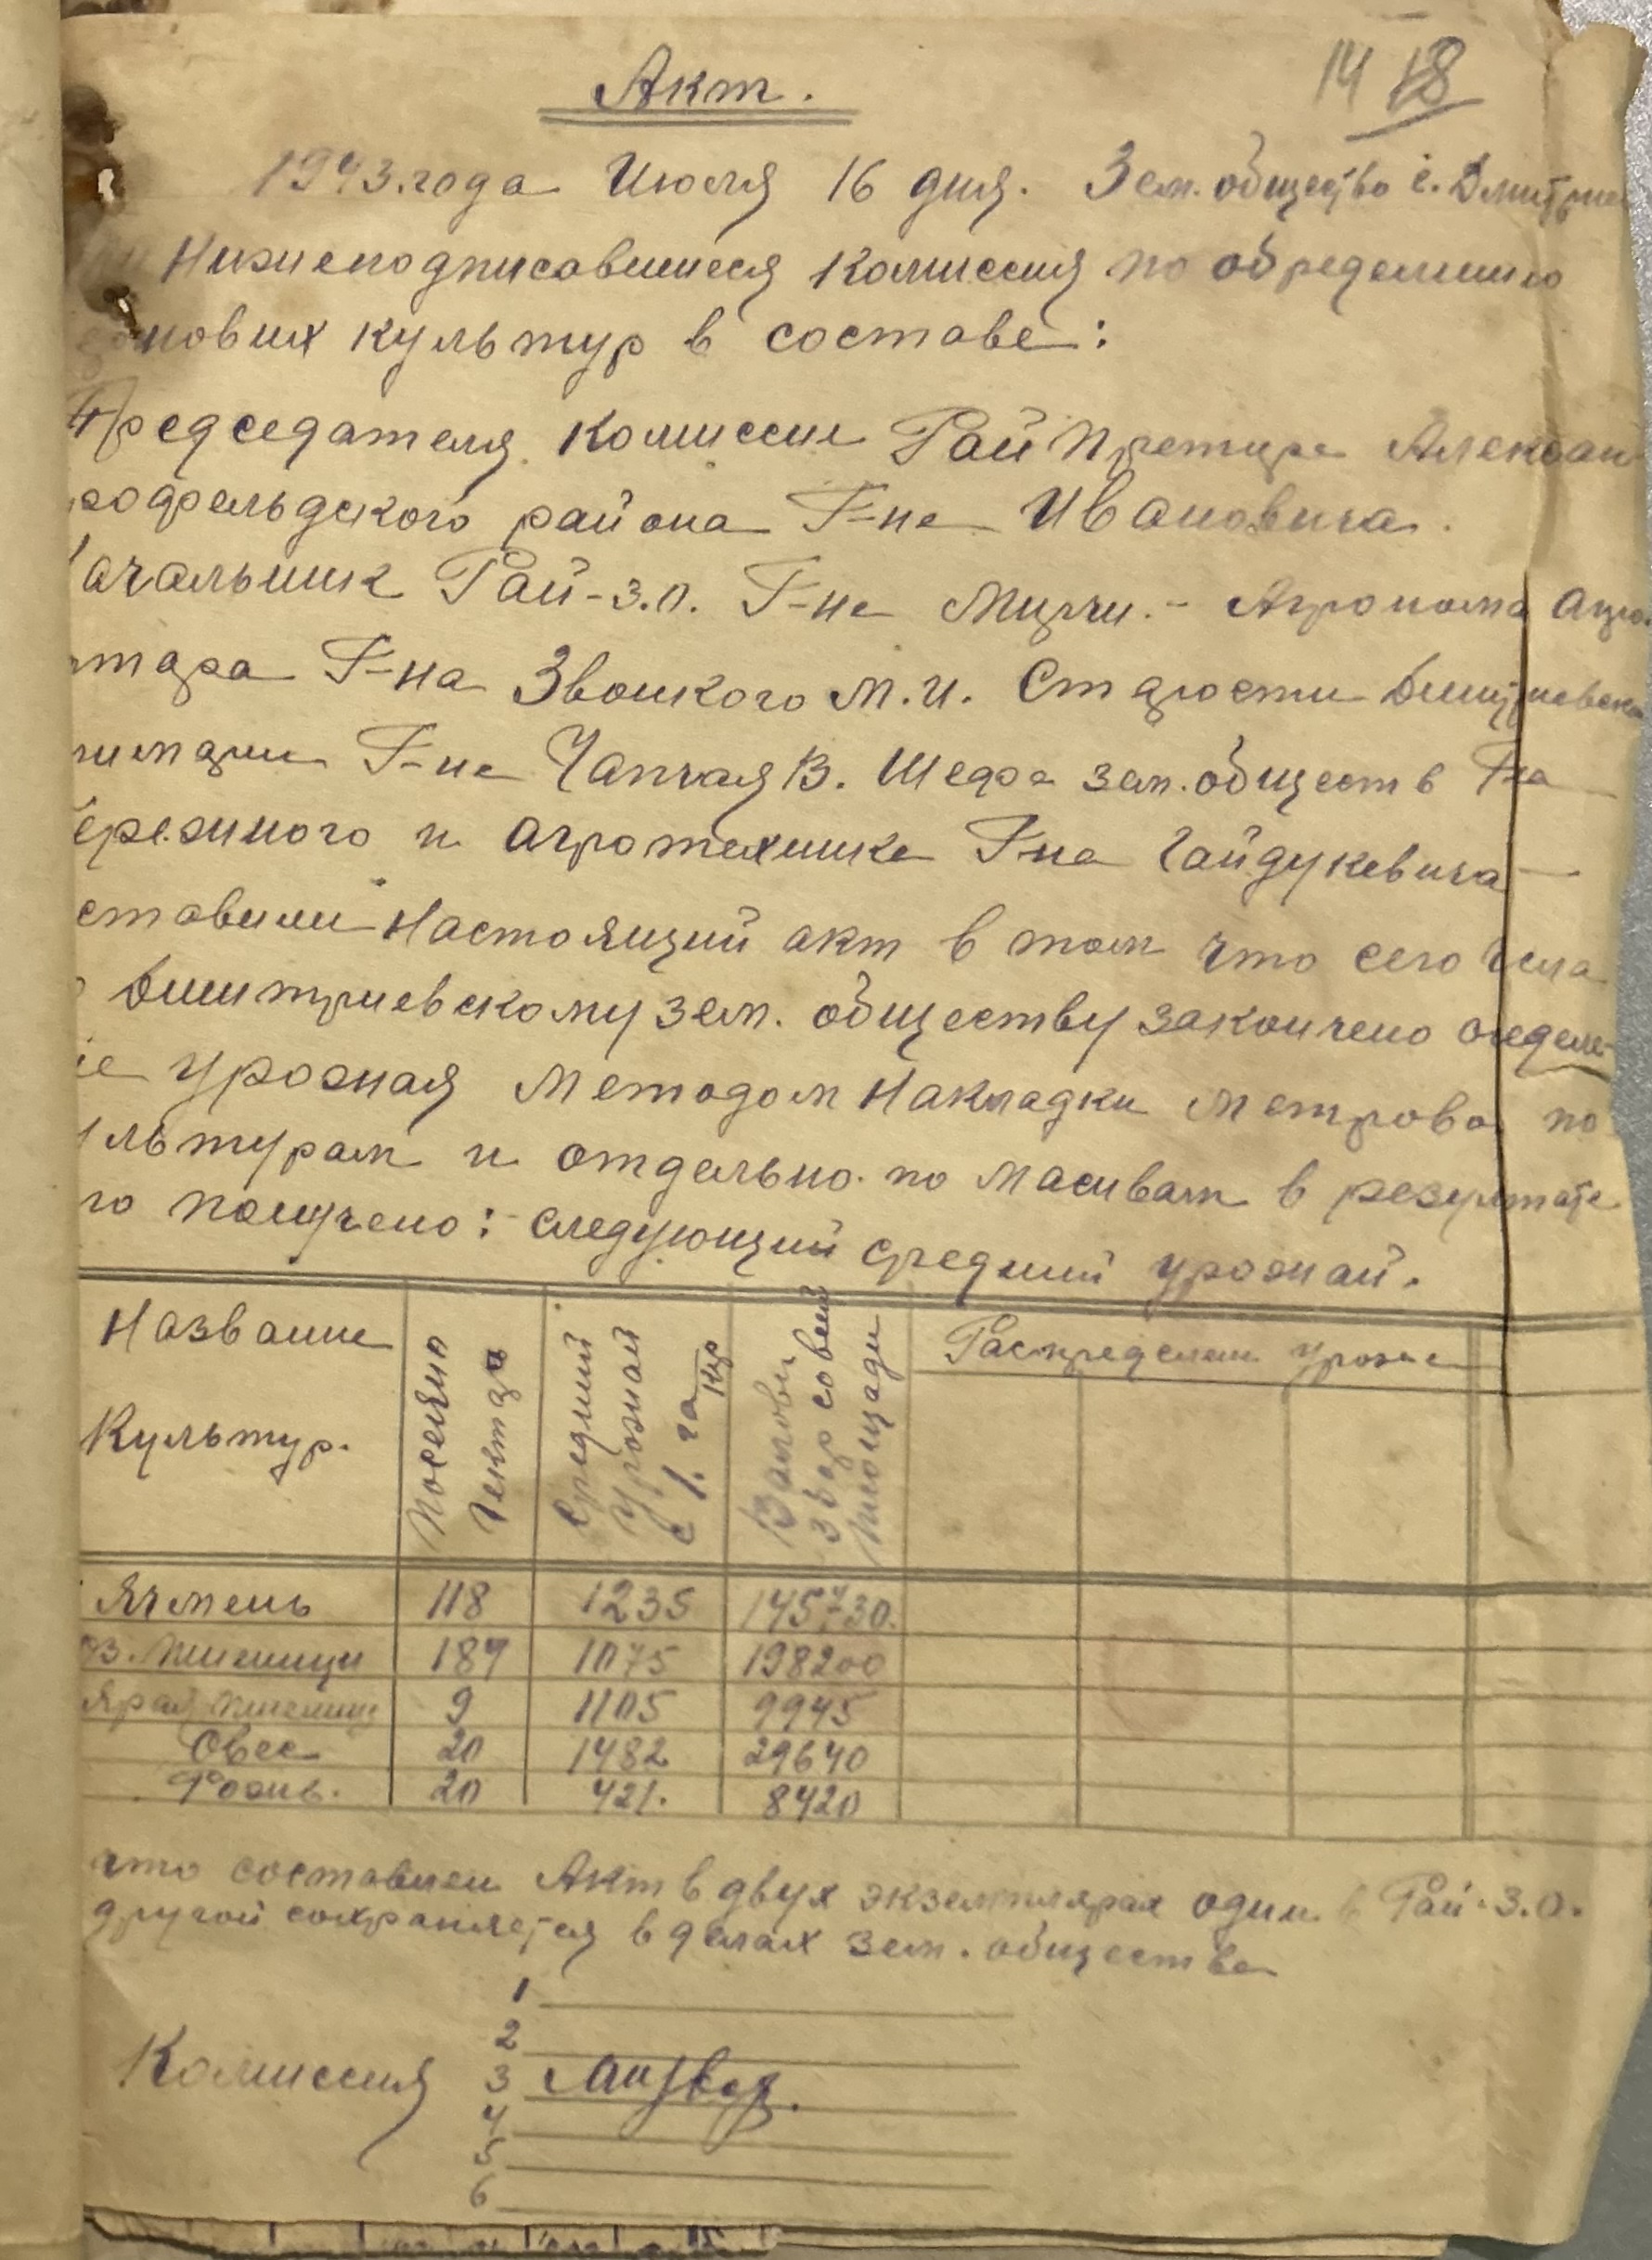 14 18
Акт.
1943.года Июля 16 дня. Зем. общество с. Дмитрие
Нижеподписавшиеся Комиссия по определению
новых культур в составе:
Председателя Комиссии Рай Претура Алексан
рофельдского района Г-на Ивановича.
ачальник Рай-З.О. Г-на - Агронома Агро.
Г-на Звонкого М.И. Старости Дмитриевск
Г-на Чапчая В. Шефа зем. обществ Г-на
ережного и агротехника Г-на Гайдукевича
ставили Настоящий акт в том что сего Числа
Дмитриевскому зем. обществу закончено определе-
ие урожая Методом Накладки метровки по
ультурам и отдельно по масивам в результате
го получено: следующий средний урожай.
Название Культур.
Посеяно Гектар
Средний Урожай с 1. га Кгр
Валовый збор со всей площади
Распределен урожая
Ячмень 118 1235 145730.
оз. Пшеници 184 1075 198200
Ярая Пшениц 9 1105 9945
Овес 20 1482 29640
Рожь. 20 421. 8420
что составлен Акт в двух экземплярах один в Рай-З.О.
другой сохраняется в делах зем. общества
Комиссия
1
2
3
4
5
6